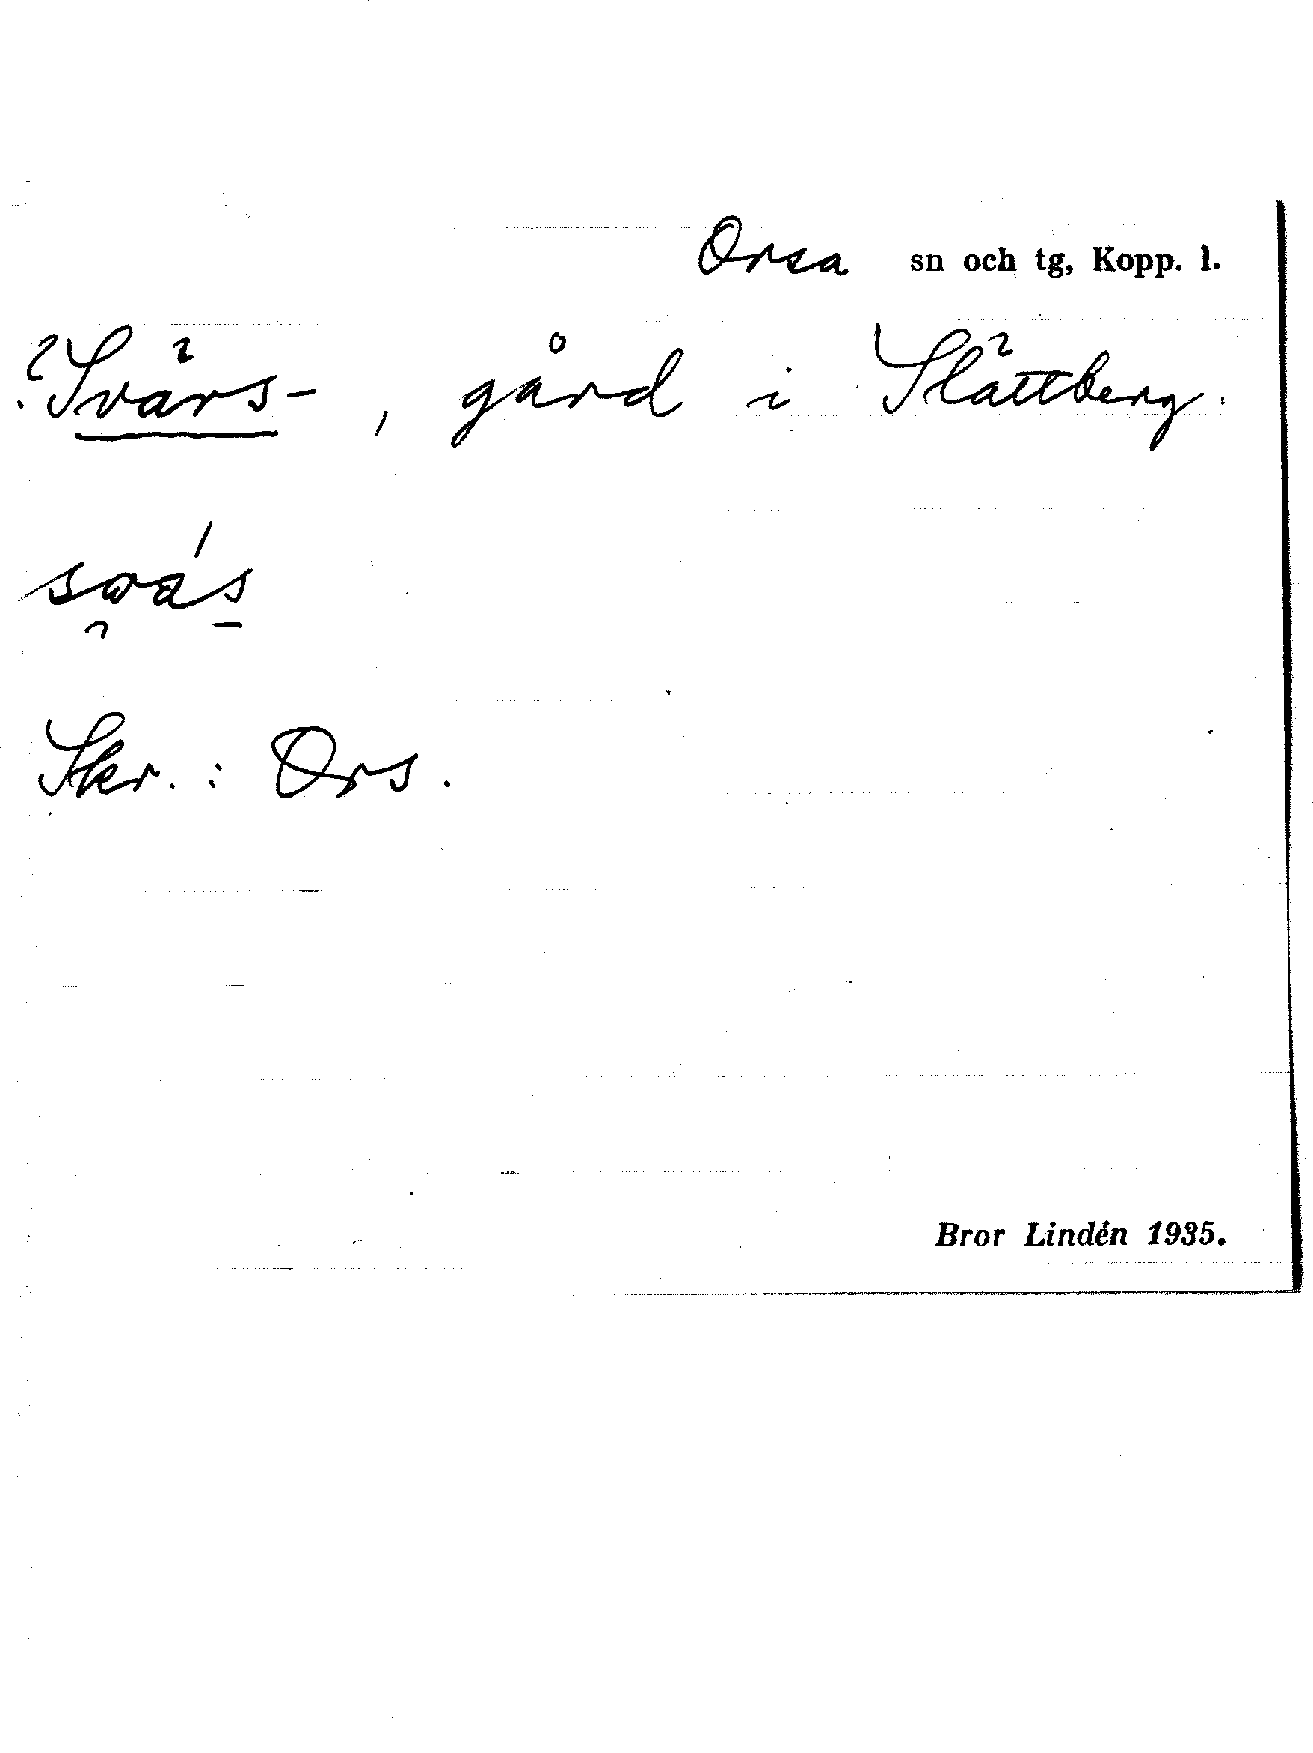 Orsa sn och tg, Kopp. l.
?Svärs-, gård i Slättberg.
Skr.: Ors.
Bror Lindén 1935.